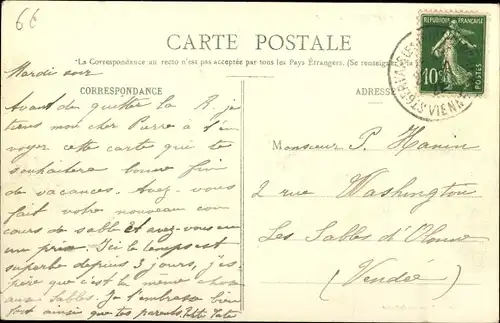 66
CARTE POSTALE
*La Correspondance au recto n'est pas acceptée par tous les Pays Étrangers. (Se renseigner à la
CORRESPONDANCE
ADRESSE
RÉPUBLIQUE FRANÇAISE
10c
POSTES
VIENNE
Mardi soir
Avant de quitter la R. je
tiens mon cher Pierre à t'en
voyer cette carte qui te
souhaitera bonne fin
de vacances. Avez-vous
fait votre nouveau con
cours de sable et avez-vous eu
un prix. Ici le temps est
superbe depuis 3 jours, j'es
père que c'est la même chose
aux Sables. Je t'embrasse bien
fort ainsi que tes parents.
Monsieur P. Hanin
2 rue Washington
Les Sables d'Olonne
(Vendée)